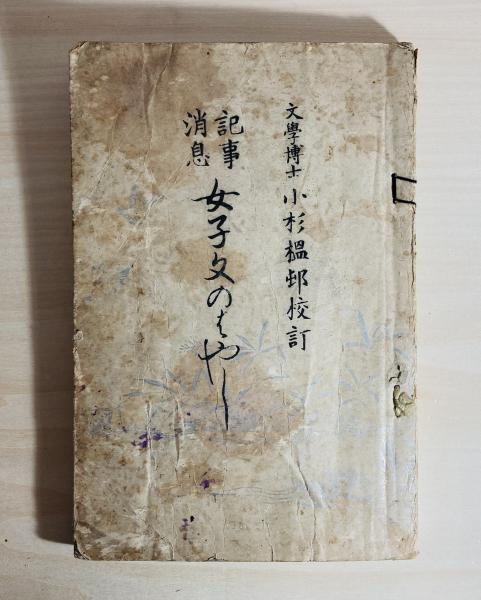 文學博士 小杉榲邨校訂
記事
消息
女子文のはやし